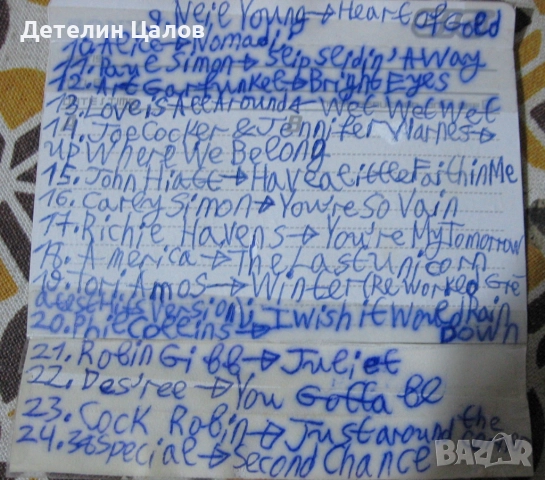 Детелин Цалов
9. Neil Young → Heart of Gold
10. Alice → Nomadi
11. Paul Simon → Slip Slidin' Away
12. Art Garfunkel → Bright Eyes
13. Love is All Around → Wet Wet Wet
14. Joe Cocker & Jennifer Warnes →
Up Where We Belong
15. John Hiatt → Have a little Faith in Me
16. Carly Simon → You're So Vain
17. Richie Havens → You're My Tomorrow
18. America → The Last Unicorn
19. Tori Amos → Winter (Reworked Gre
atest Hits Version)
20. Phil Collins → I Wish it Would Rain
Down
21. Robin Gibb → Juliet
22. Des'ree → You Gotta be
23. Cock Robin → Just around the
24. 38 Special → Second Chance
BAZAR